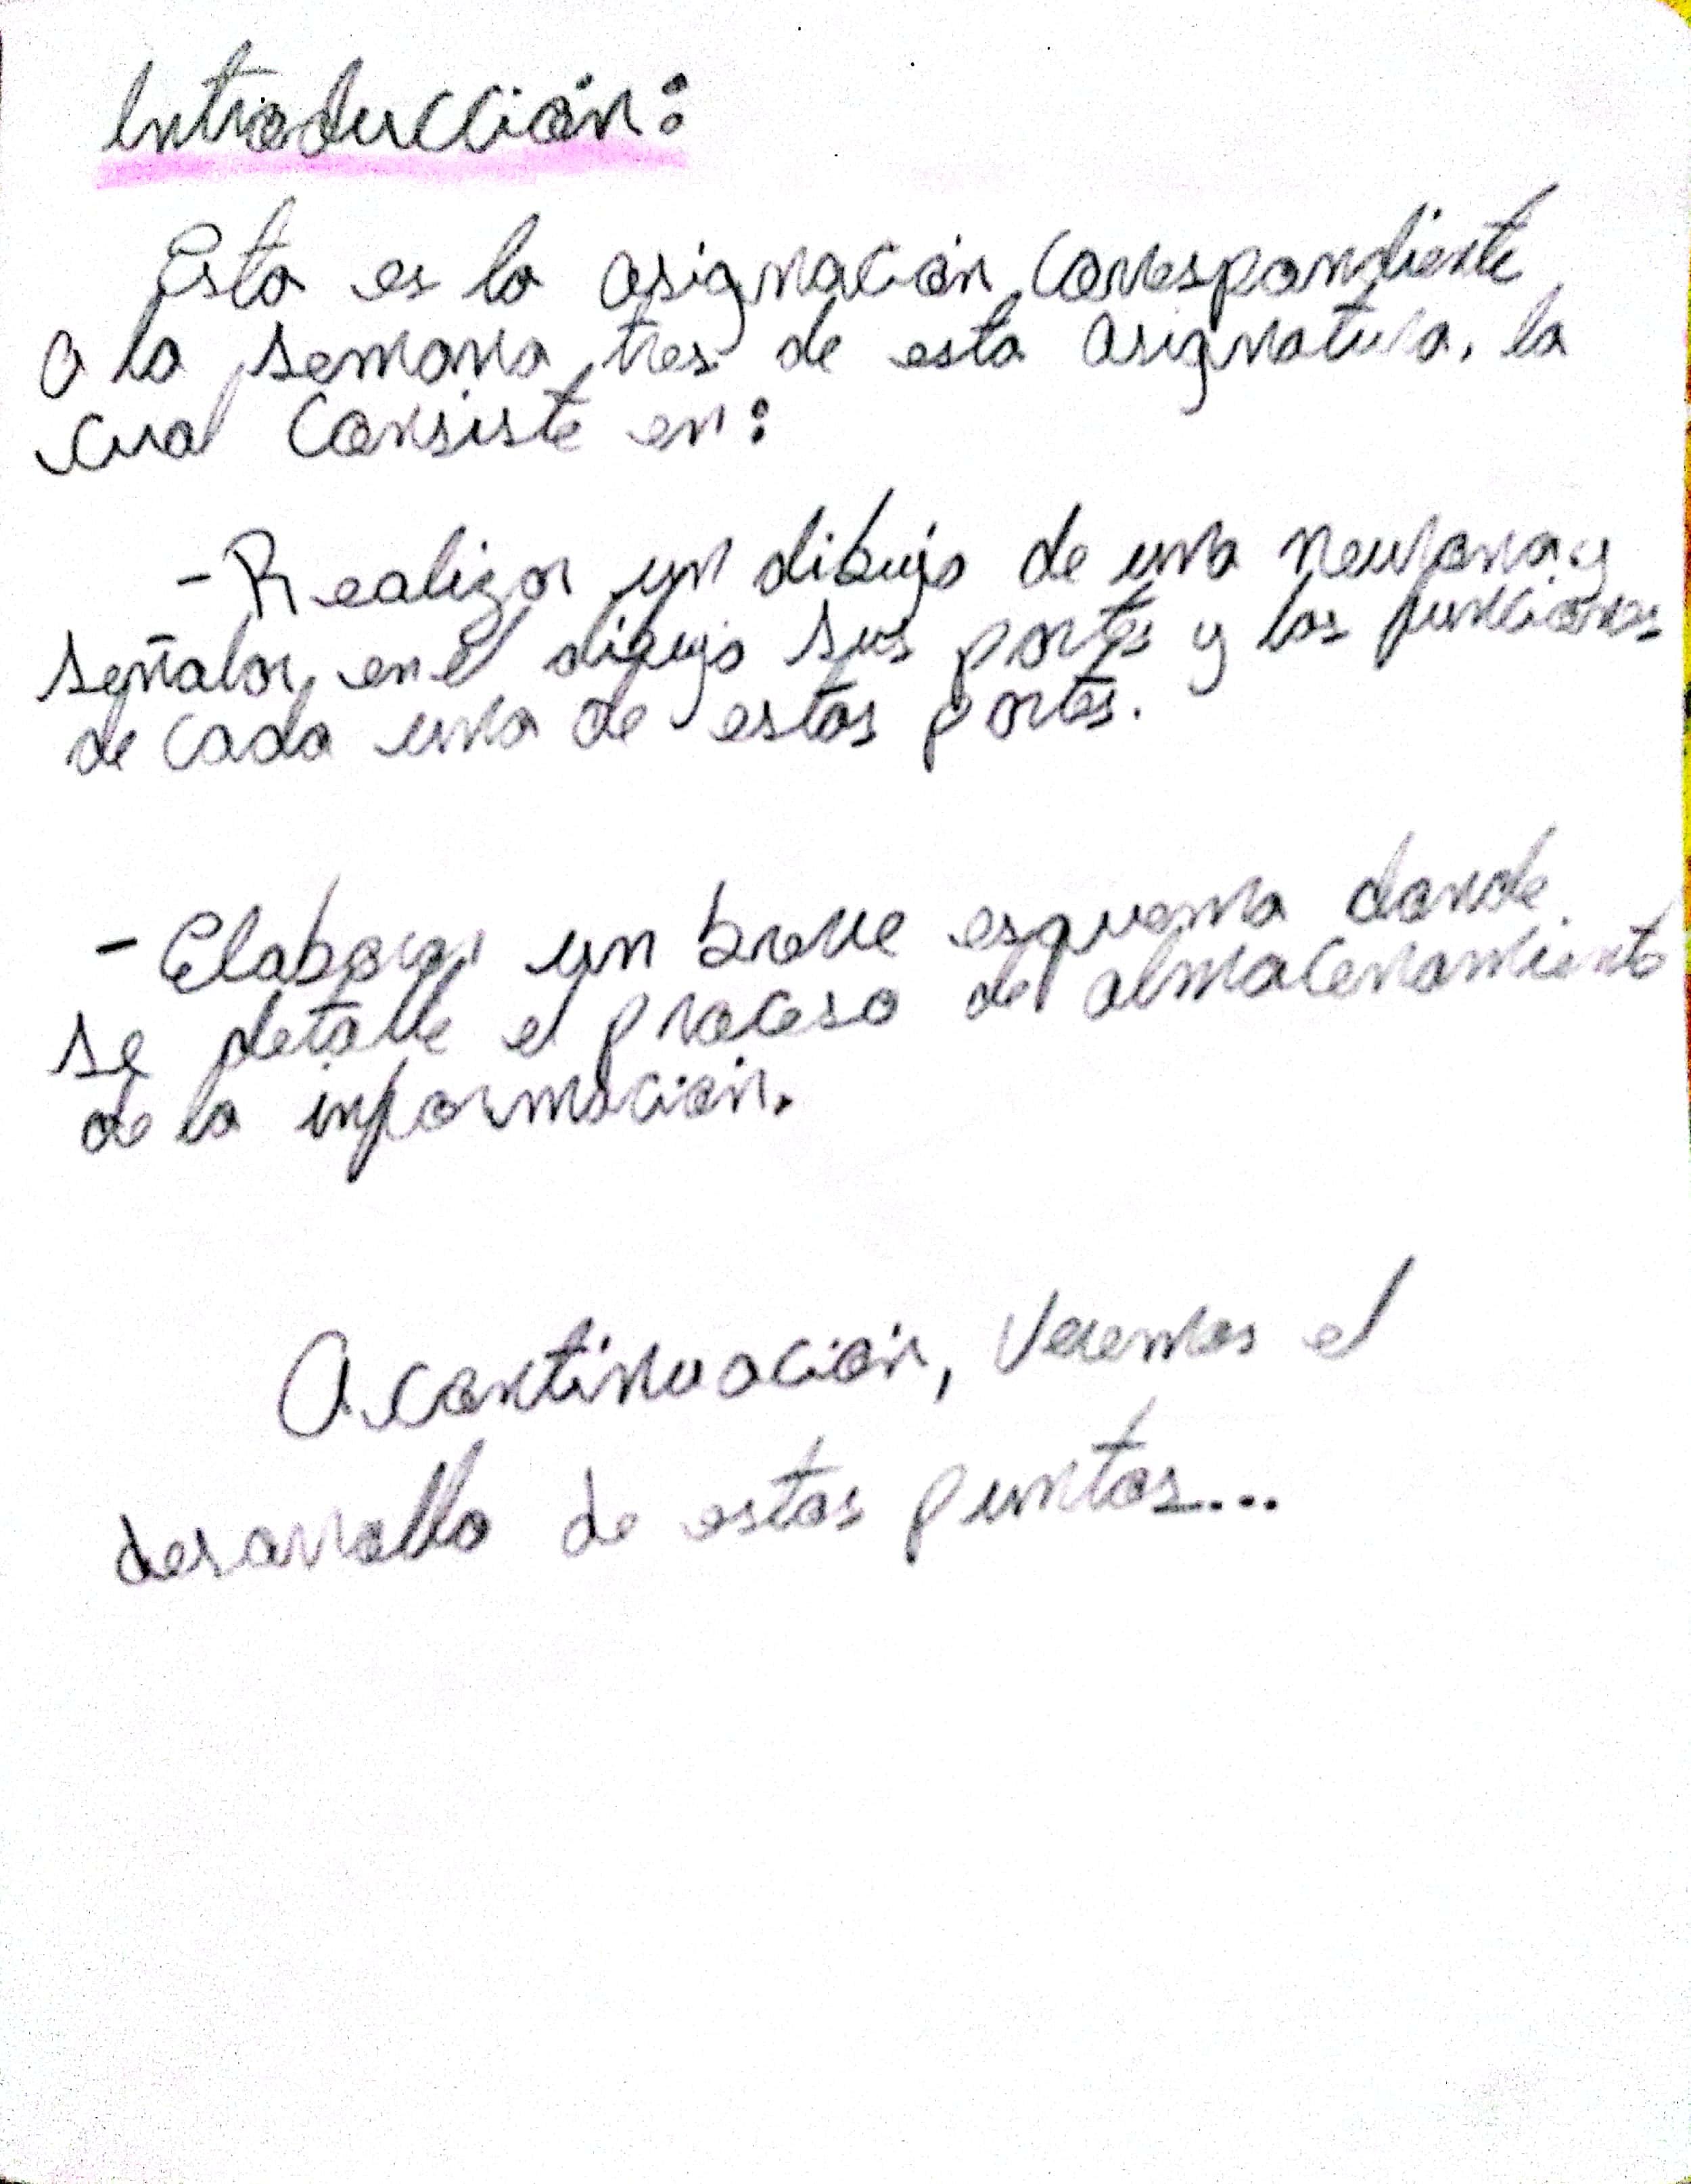 Introducción:
Esta es la asignación correspondiente
a la semana tres de esta asignatura, la
cual consiste en:
- Realizar un dibujo de una neurona y
señalar en el dibujo sus partes y las funciones
de cada una de estas partes.
- Elaborar un breve esquema donde
se detalle el proceso del almacenamiento
de la información.
A continuación, veremos el
desarrollo de estos puntos...